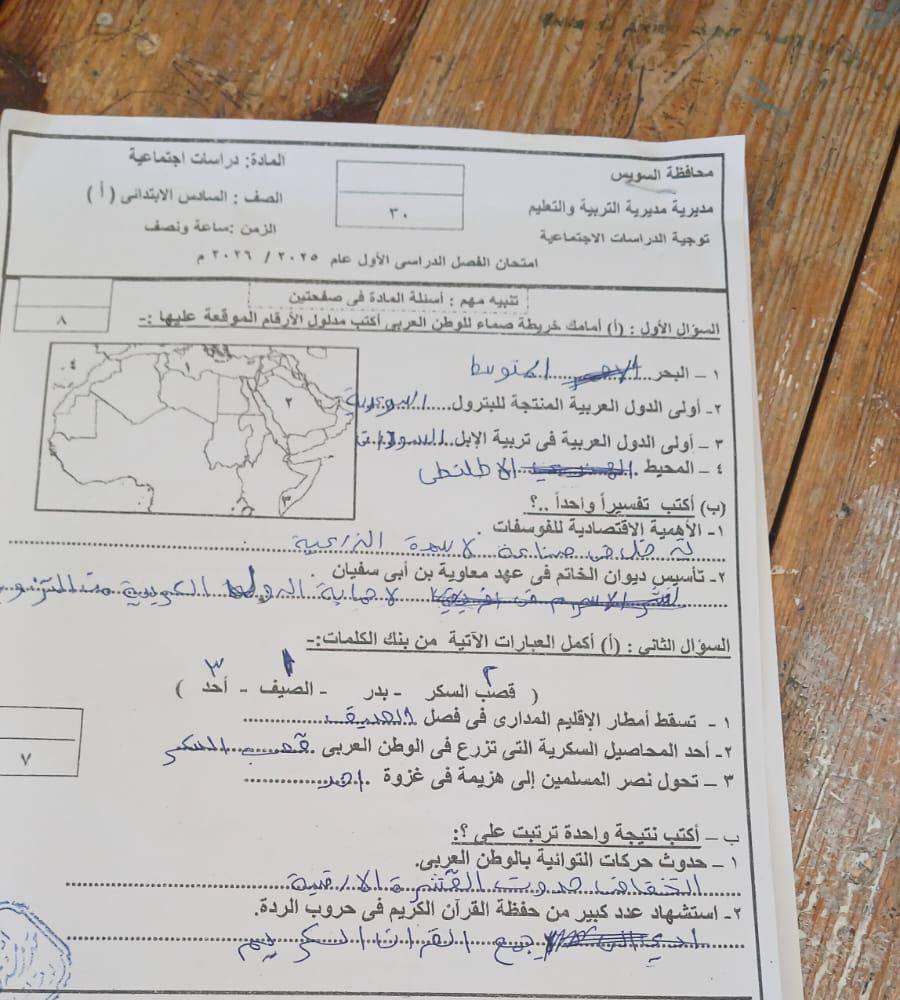 محافظة السويس
مديرية مديرية التربية والتعليم
توجية الدراسات الاجتماعية
٣٠
المادة: دراسات اجتماعية
الصف : السادس الابتدائى ( أ )
الزمن :ساعة ونصف
امتحان الفصل الدراسى الأول عام ٢٠٢٥ / ٢٠٢٦ م
تنبيه مهم : أسئلة المادة فى صفحتين
٨
السؤال الأول : (أ) أمامك خريطة صماء للوطن العربى أكتب مدلول الأرقام الموقعة عليها :-
١ – البحر الاحمر المتوسط
٢- أولى الدول العربية المنتجة للبترول السعودية
٣ – أولى الدول العربية فى تربية الإبل السودان
٤ – المحيط الهندى الاطلنطى
٤ ١ ٢ ٣
(ب) أكتب تفسيراً واحداً ..؟
١- الأهمية الاقتصادية للفوسفات
يدخل فى صناعة الاسمدة الزراعية
٢- تأسيس ديوان الخاتم فى عهد معاوية بن أبى سفيان
لحماية الكويدية من التزوير
السؤال الثانى : (أ) أكمل العبارات الآتية من بنك الكلمات:-
٢ ١ ٣
( قصب السكر - بدر - الصيف - أحد )
١ - تسقط أمطار الإقليم المدارى فى فصل الصيف
٢- أحد المحاصيل السكرية التى تزرع فى الوطن العربى قصب السكر
٣ – تحول نصر المسلمين إلى هزيمة فى غزوة احد
٧
ب – أكتب نتيجة واحدة ترتبت على ؟:
١ – حدوث حركات التوائية بالوطن العربى.
انخفاض حدوث القشرة الارضية
٢- استشهاد عدد كبير من حفظة القرآن الكريم فى حروب الردة.
جمع القران الكريم